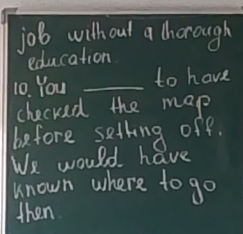 job without a thorough
education.
10. You ______ to have
checked the map
before setting off.
We would have
known where to go
then.